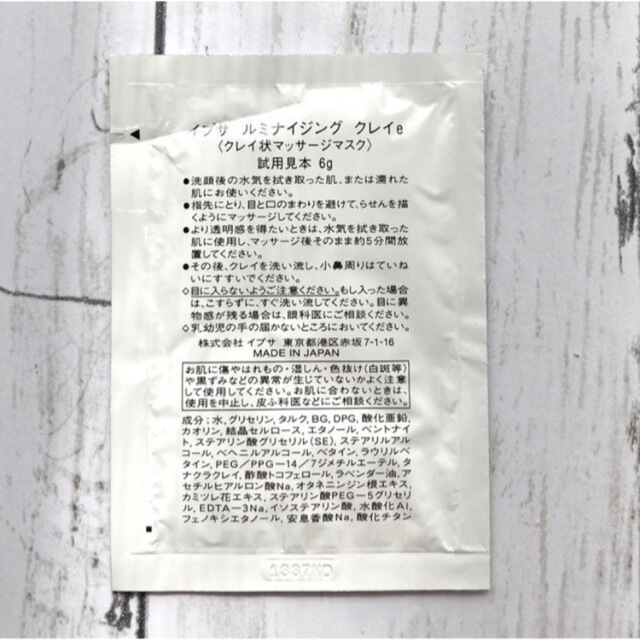 イプサ ルミナイジング クレイe
〈クレイ状マッサージマスク〉
試用見本 6g
●洗顔後の水気を拭き取った肌、または濡れた
肌にお使いください。
●指先にとり、目と口のまわりを避けて、らせんを描
くようにマッサージしてください。
●より透明感を得たいときは、水気を拭き取った
肌に使用し、マッサージ後そのまま約5分間放
置してください。
●その後、クレイを洗い流し、小鼻周りはていね
いにすすいでください。
◇目に入らないようご注意ください。もし入った場合
は、こすらずに、すぐ洗い流してください。目に異
物感が残る場合は、眼科医にご相談ください。
◇乳幼児の手の届かないところにおいてください。
株式会社 イプサ 東京都港区赤坂7-1-16
MADE IN JAPAN
お肌に傷やはれもの・湿しん・色抜け(白斑等)
や黒ずみなどの異常が生じていないかよく注意
して使用してください。お肌に合わないときは、
使用を中止し、皮ふ科医などにご相談ください。
成分：水,グリセリン,タルク,BG,DPG,酸化亜鉛,
カオリン,結晶セルロース,エタノール,ベントナイ
ト,ステアリン酸グリセリル(SE),ステアリルアル
コール,ベヘニルアルコール,ベタイン,ラウリルベ
タイン,PEG／PPG－14／7ジメチルエーテル,タ
ナクラクレイ,酢酸トコフェロール,ラベンダー油,ア
セチルヒアルロン酸Na,オタネニンジン根エキス,
カミツレ花エキス,ステアリン酸PEG－5グリセリ
ル,EDTA－3Na,イソステアリン酸,水酸化Al,
フェノキシエタノール,安息香酸Na,酸化チタン
1337ND